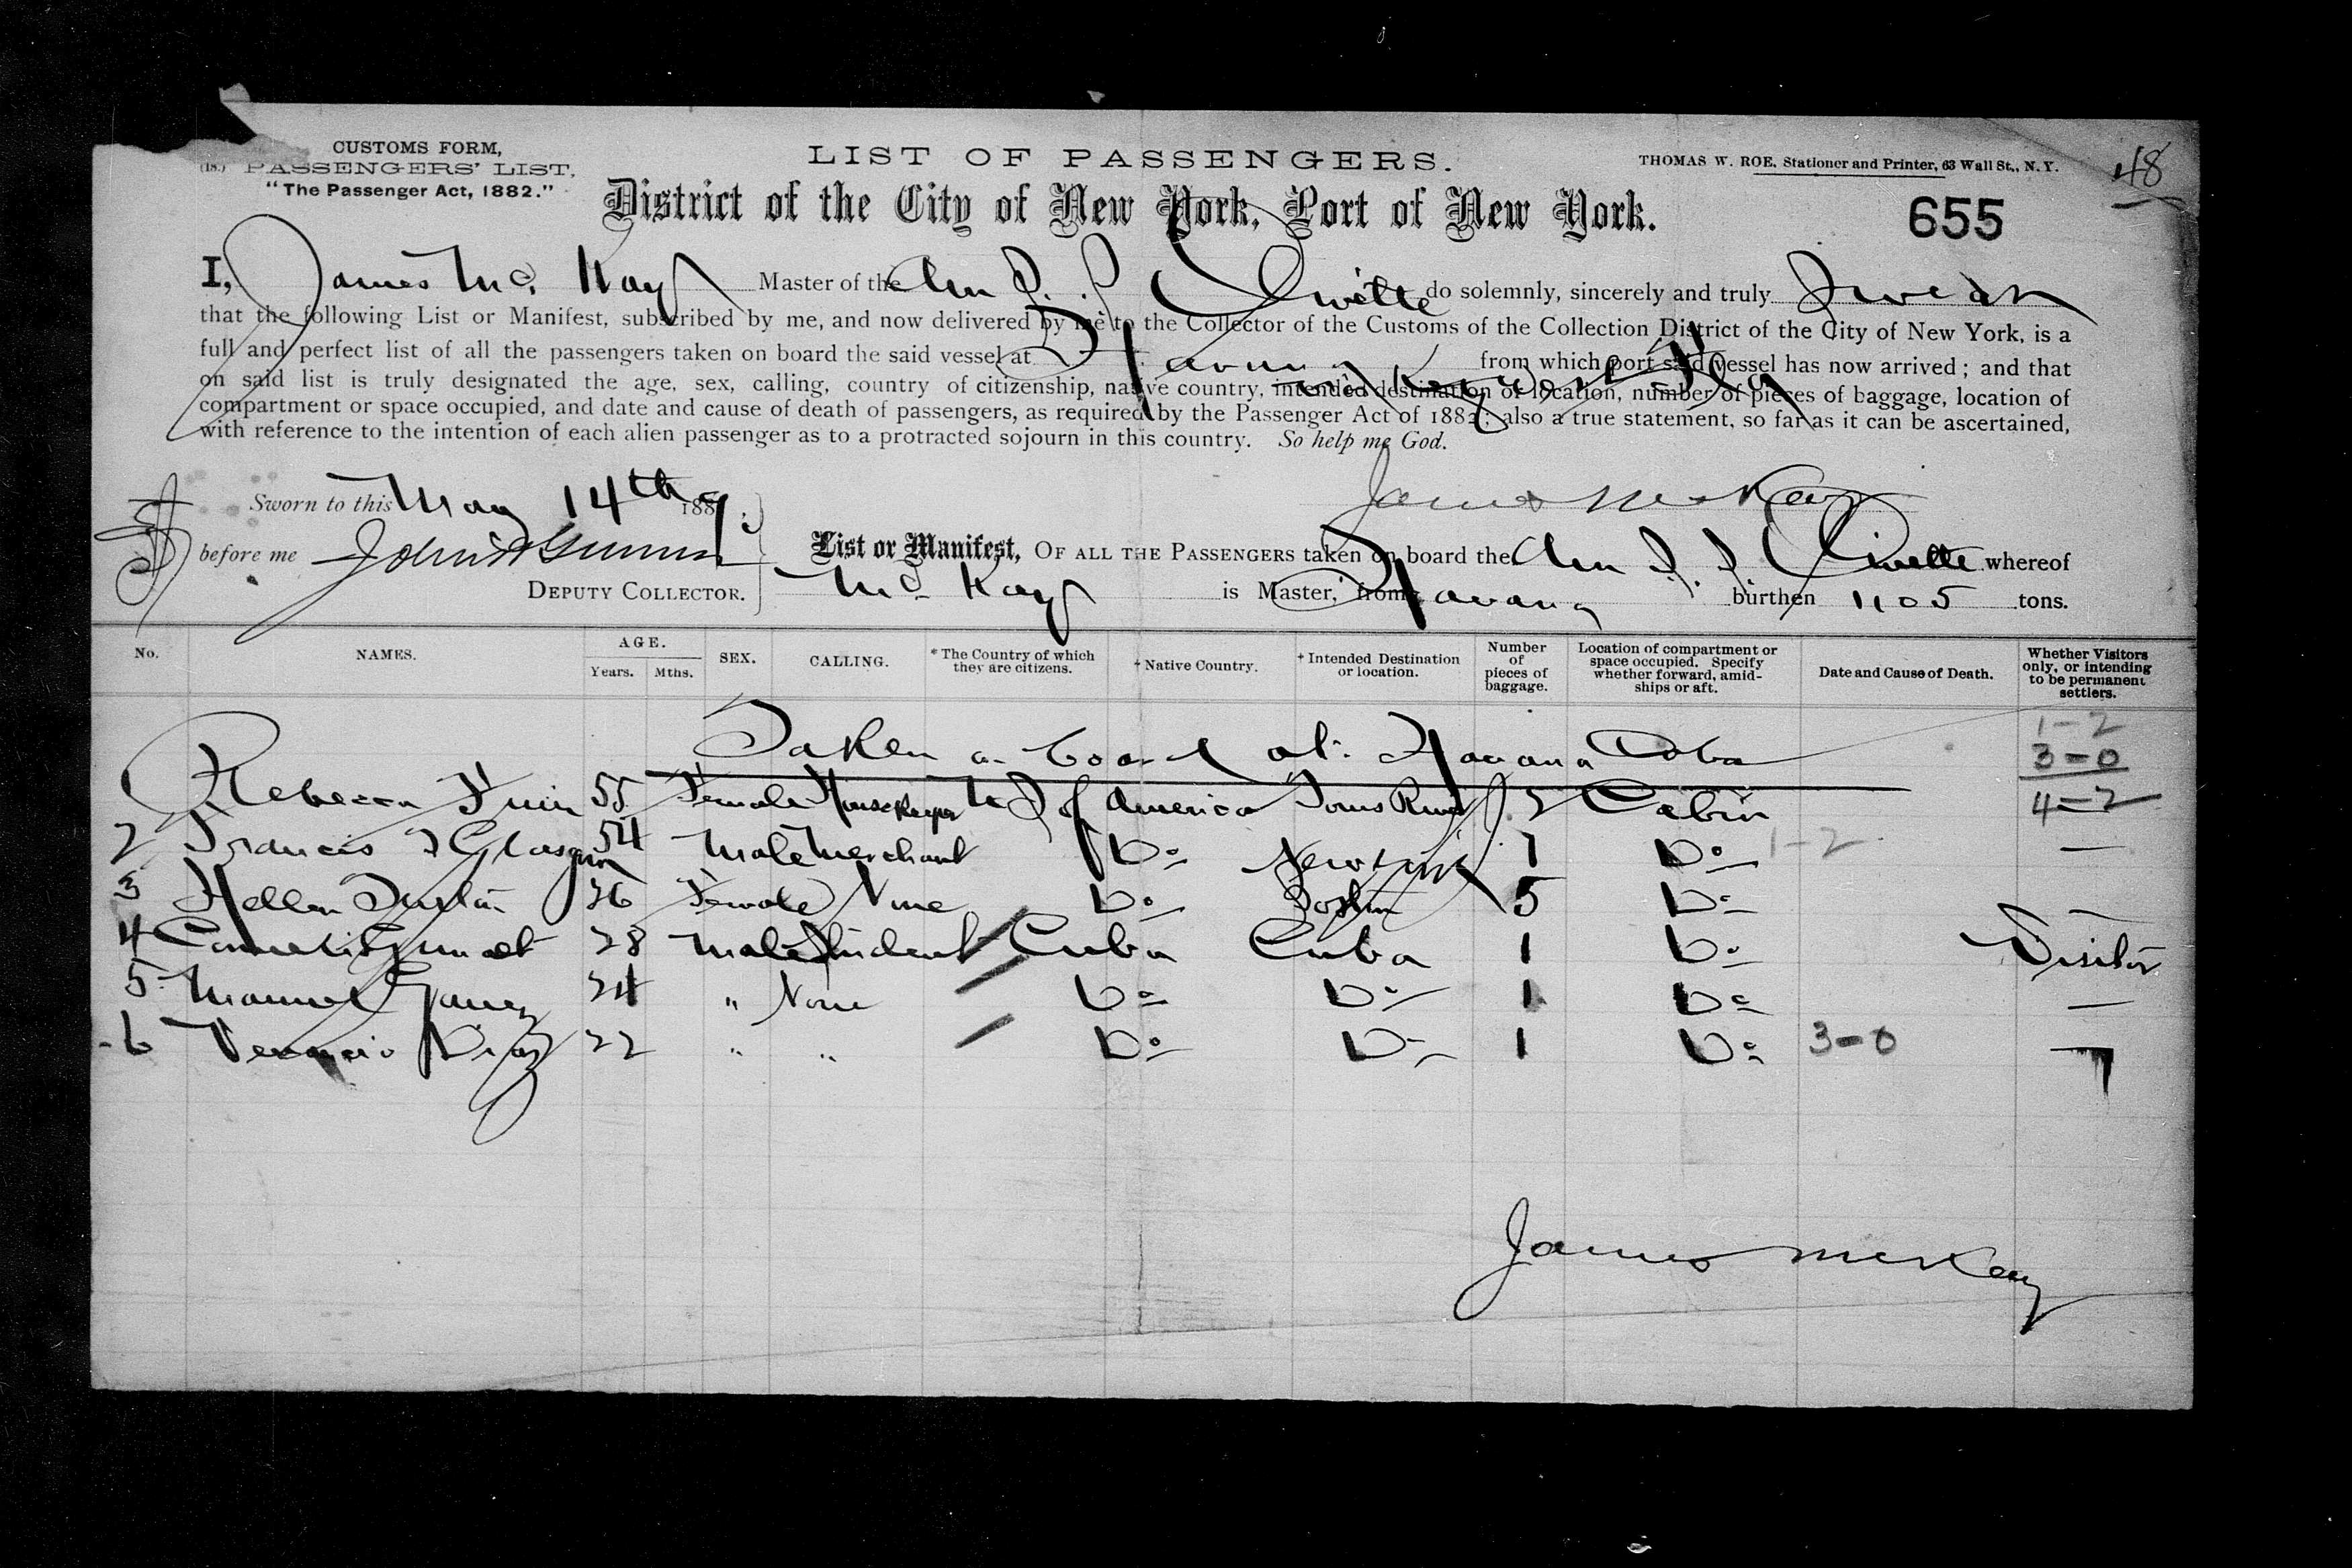 CUSTOMS FORM,
(18.) PASSENGERS' LIST,
"The Passenger Act, 1882."
LIST OF PASSENGERS.
THOMAS W. ROE, Stationer and Printer, 63 Wall St., N.Y.
48
District of the City of New York, Port of New York.
655
I, James Mc. Kay Master of the Am S.S. Olivette do solemnly, sincerely and truly Swear
that the following List or Manifest, subscribed by me, and now delivered by me to the Collector of the Customs of the Collection District of the City of New York, is a
full and perfect list of all the passengers taken on board the said vessel at Havana from which port said vessel has now arrived; and that
on said list is truly designated the age, sex, calling, country of citizenship, native country, intended destination or location, number of pieces of baggage, location of
compartment or space occupied, and date and cause of death of passengers, as required by the Passenger Act of 1882; also a true statement, so far as it can be ascertained,
with reference to the intention of each alien passenger as to a protracted sojourn in this country. So help me God.
Sworn to this May 14th 1889.
James McKay
before me John A Gunn
DEPUTY COLLECTOR.
List or Manifest, OF ALL THE PASSENGERS taken on board the Am S.S. Olivette whereof
Mc. Kay is Master, from Havana burthen 1105 tons.
No. NAMES. AGE. Years. Mths. SEX. CALLING. * The Country of which they are citizens. † Native Country. † Intended Destination or location. Number of pieces of baggage. Location of compartment or space occupied. Specify whether forward, amid-ships or aft. Date and Cause of Death. Whether Visitors only, or intending to be permanent settlers.
1-2
Taken on board at Havana Cuba 3-0
Rebecca 55 Female Housekeeper U S of America Toms River 2 Cabin 4-2
2 Francis 54 Male Merchant Do New York 1 Do 1-2 —
3 Hellen 26 Female None Do Boston 5 Do —
4 28 Male Student Cuba Cuba 1 Do Visitor
5 Manuel 24 " None Do Do 1 Do —
6 Venancio Diaz 22 " " Do Do 1 Do 3-0 —
James McKay